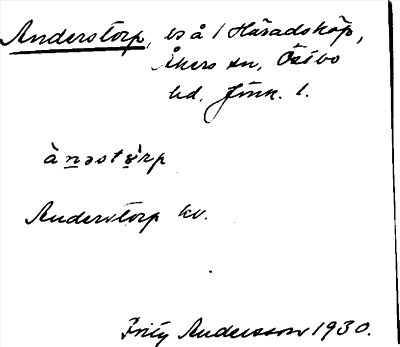 Anderstorp, ls å 1 Häradsköp,
Åkers sn, Östbo
hd. Jönk. l.
ànəstỳrp
Anderstorp kv.
Fritz Andersson 1930.